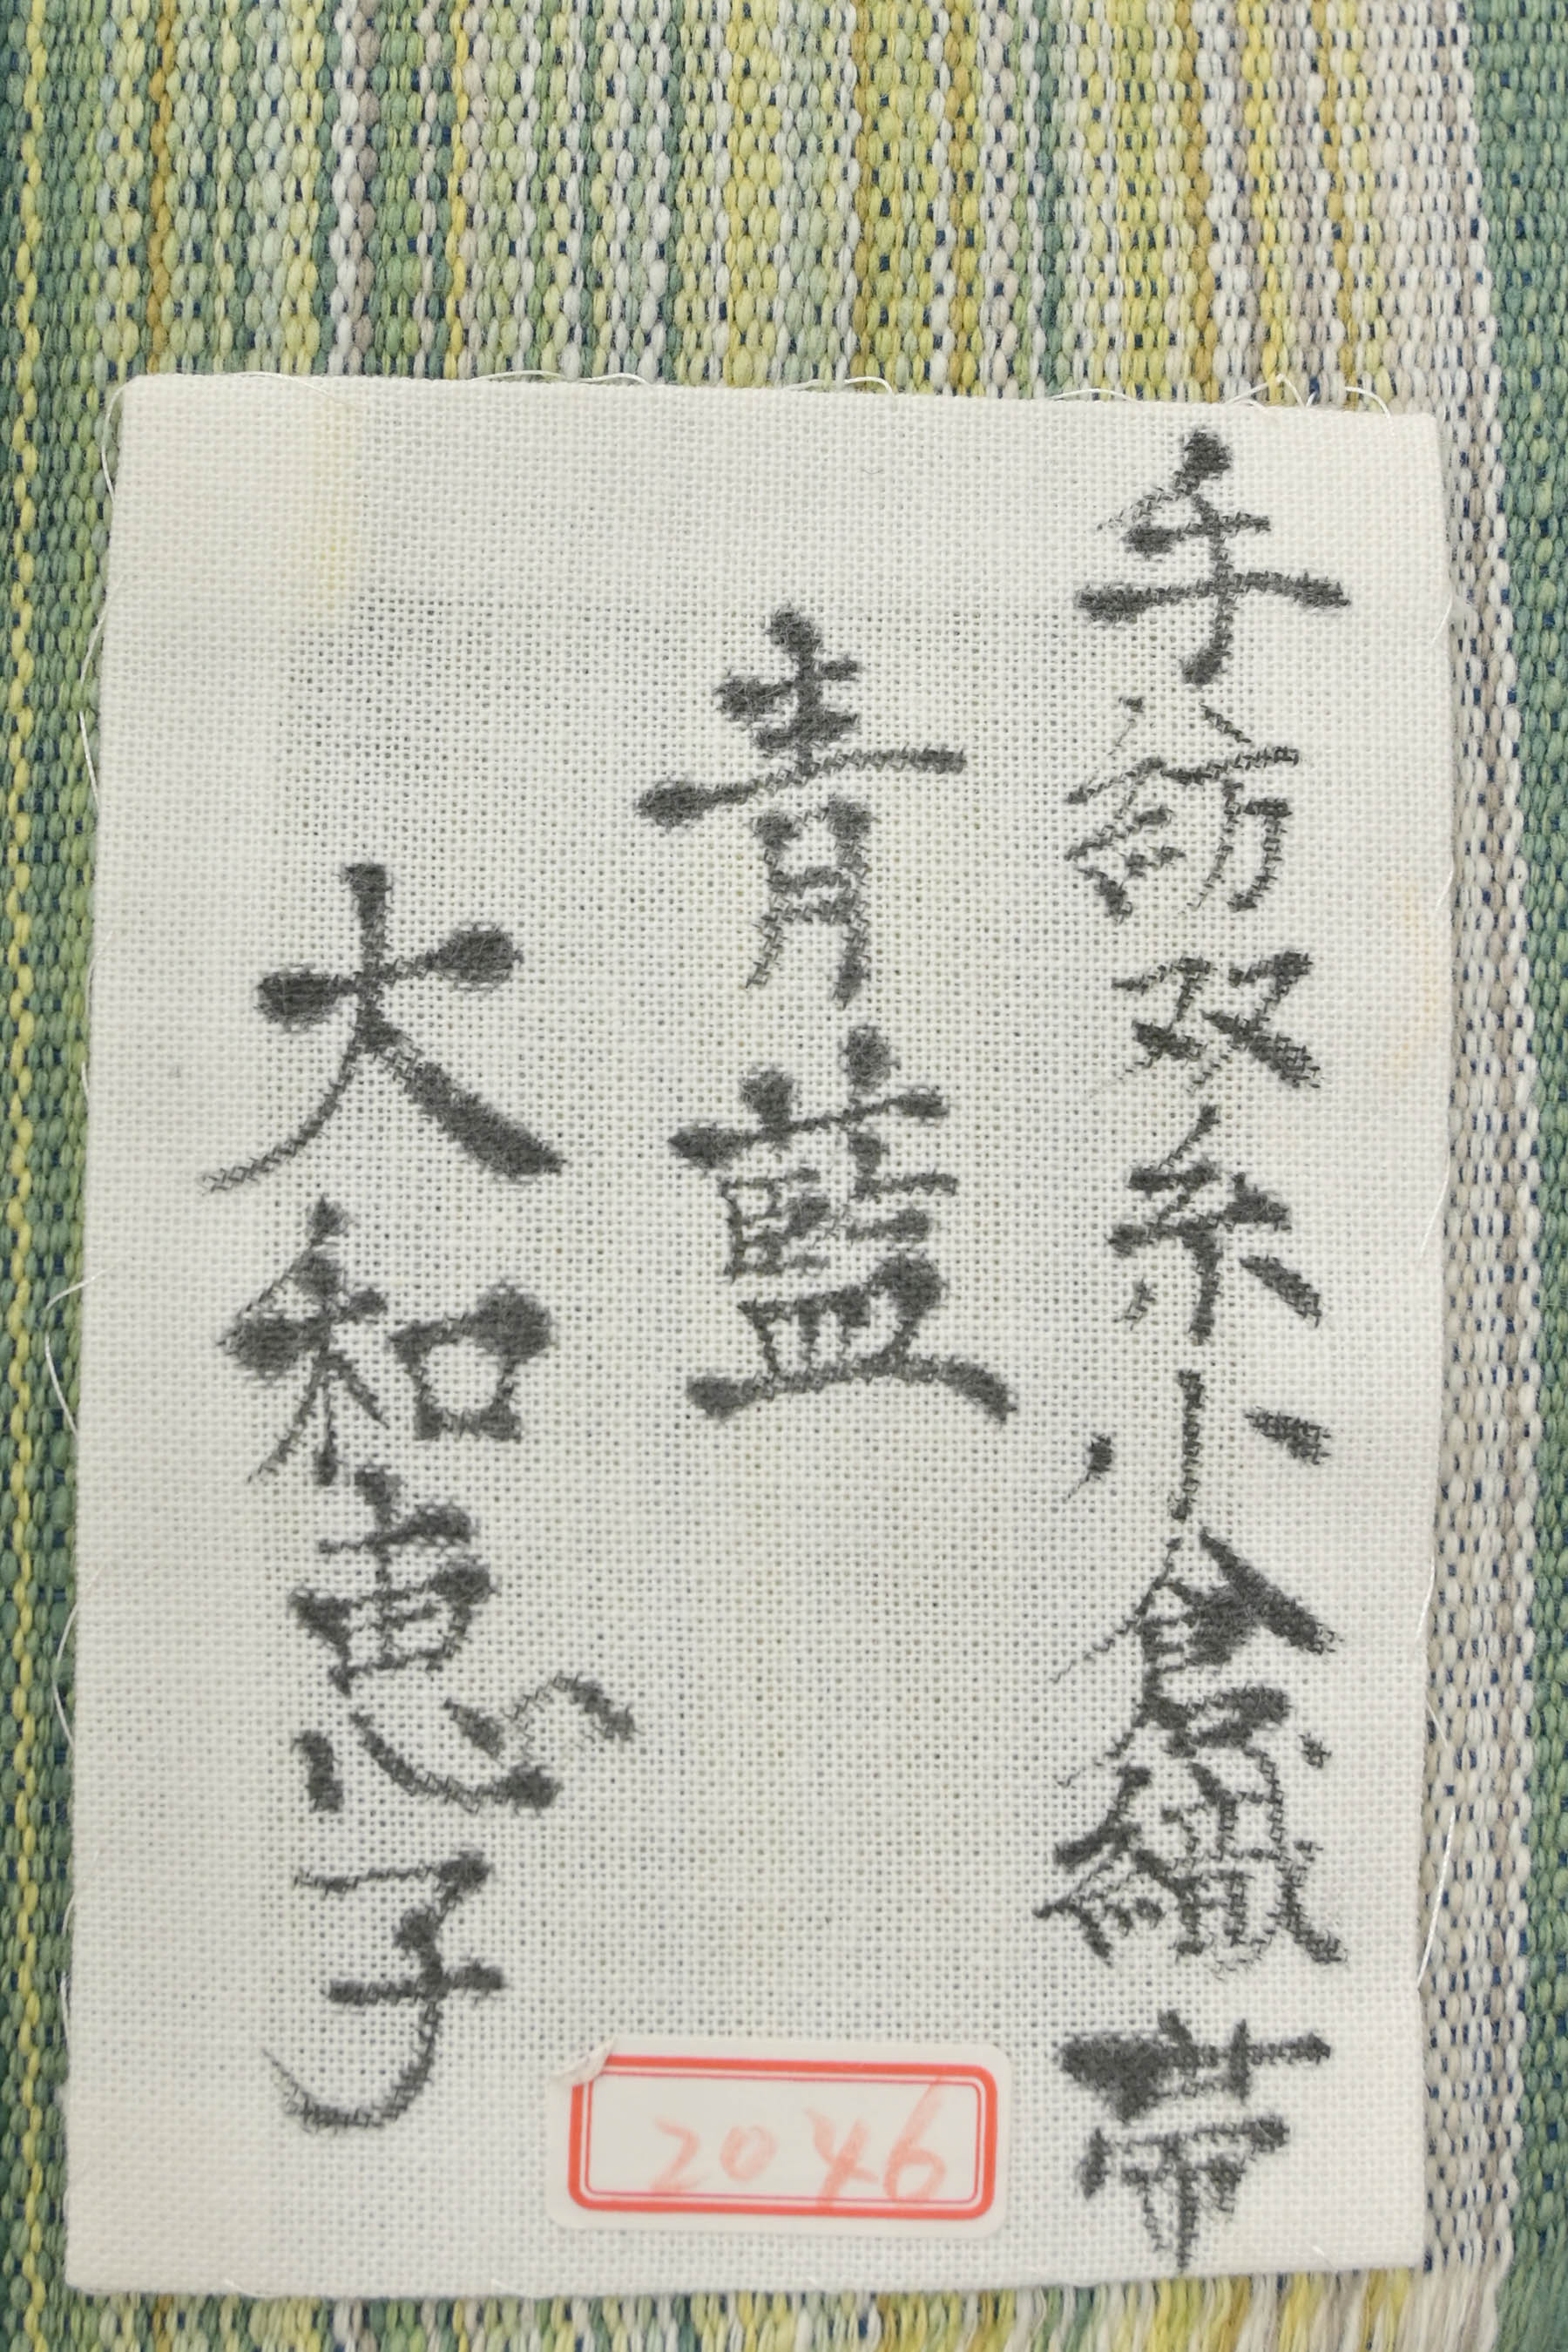 手紡双糸小倉織帯
青藍
大和恵子
2046